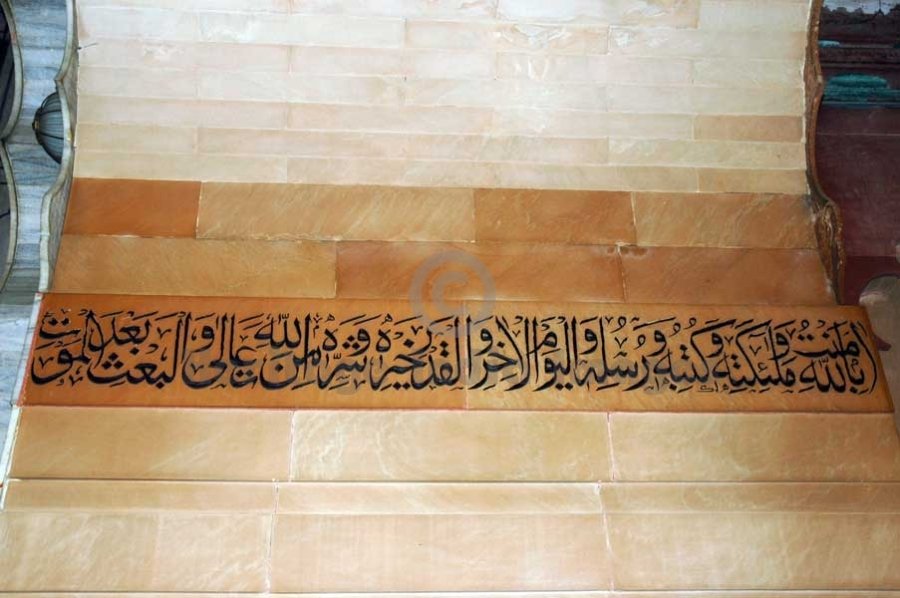 اٰمنت بالله وملٰئكته وكتبه ورسله واليوم الاٰخر والقدر خيره وشره من الله تعالى والبعث بعد الموت
©